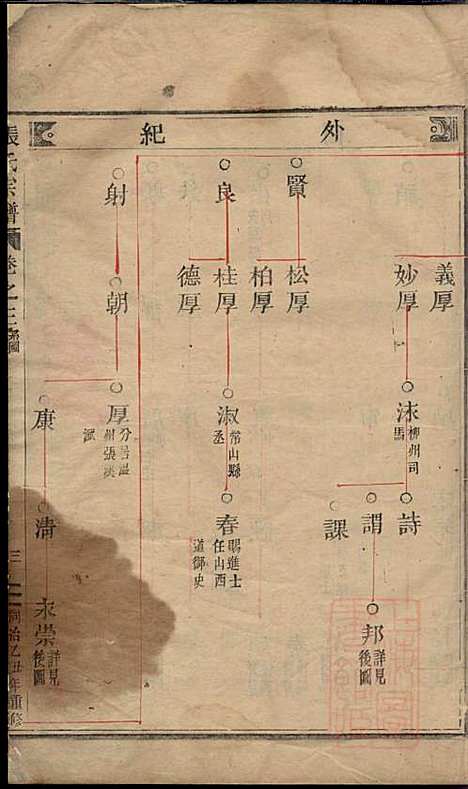 外紀
義厚
妙厚
洣 柳州司馬
詩
謂
課
邦 詳見後圖
賢
松厚
柏厚
良
桂厚
德厚
淑 常山縣丞
春 賜進士任山西道御史
射
朝
厚
康
清
永崇 詳見後圖
張氏宗譜 卷之三
三
同治乙丑年重修